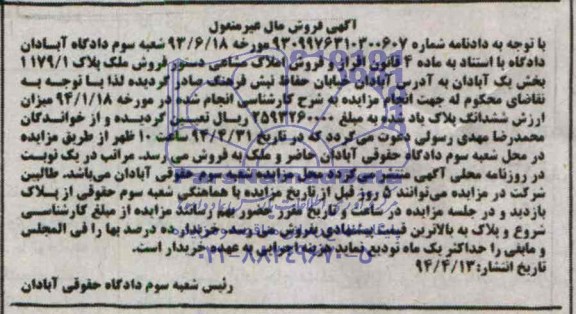 آگهی فروش مال غیرمنقول
با توجه به دادنامه شماره ۹۳۰۹۹۷۶۳۱۰۳۰۰۶۰۷ مورخه ۹۳/۶/۱۸ شعبه سوم دادگاه آبادان
دادگاه با استناد به ماده ۴ قانون افراز و فروش املاک مشاعی دستور فروش ملک پلاک ۱۱۷۹/۱
بخش یک آبادان به آدرس آبادان خیابان حفاظ نبش فرهنگ صادر گردیده لذا با توجه به
تقاضای محکوم له جهت انجام مزایده به شرح کارشناسی انجام شده در مورخه ۹۴/۱/۱۸ میزان
ارزش ششدانگ پلاک یاد شده به مبلغ ۲۵۹۳۲۶۰۰۰۰ ریال تعیین گردیده و از خواندگان
محمدرضا مهدی رسولی دعوت می‌گردد که در تاریخ ۹۴/۴/۳۱ ساعت ۱۰ ظهر از طریق مزایده
در محل شعبه سوم دادگاه حقوقی آبادان حاضر و ملک به فروش می رسد. مراتب در یک نوبت
در روزنامه محلی آگهی منتشر می‌گردد محل مزایده شعبه سوم حقوقی آبادان می‌باشد. طالبین
شرکت در مزایده می‌توانند ۵ روز قبل از تاریخ مزایده با هماهنگی شعبه سوم حقوقی از پلاک
بازدید و در جلسه مزایده در ساعت و تاریخ مقرر حضور بهم رسانند مزایده از مبلغ کارشناسی
شروع و پلاک به بالاترین قیمت پیشنهادی بفروش می‌رسد. خریدار ده درصد بها را فی المجلس
و مابقی را حداکثر یک ماه تودیع نماید هزینه اجرایی به عهده خریدار است.
تاریخ انتشار: ۹۴/۴/۱۳
رئیس شعبه سوم دادگاه حقوقی آبادان
۰۲۱-۸۸۳۴۹۶۷۰-۵